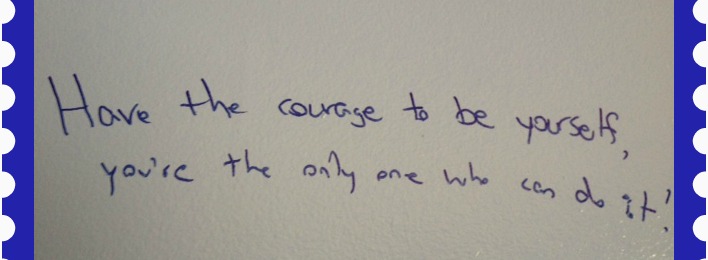 Have the courage to be yourself,
you're the only one who can do it!